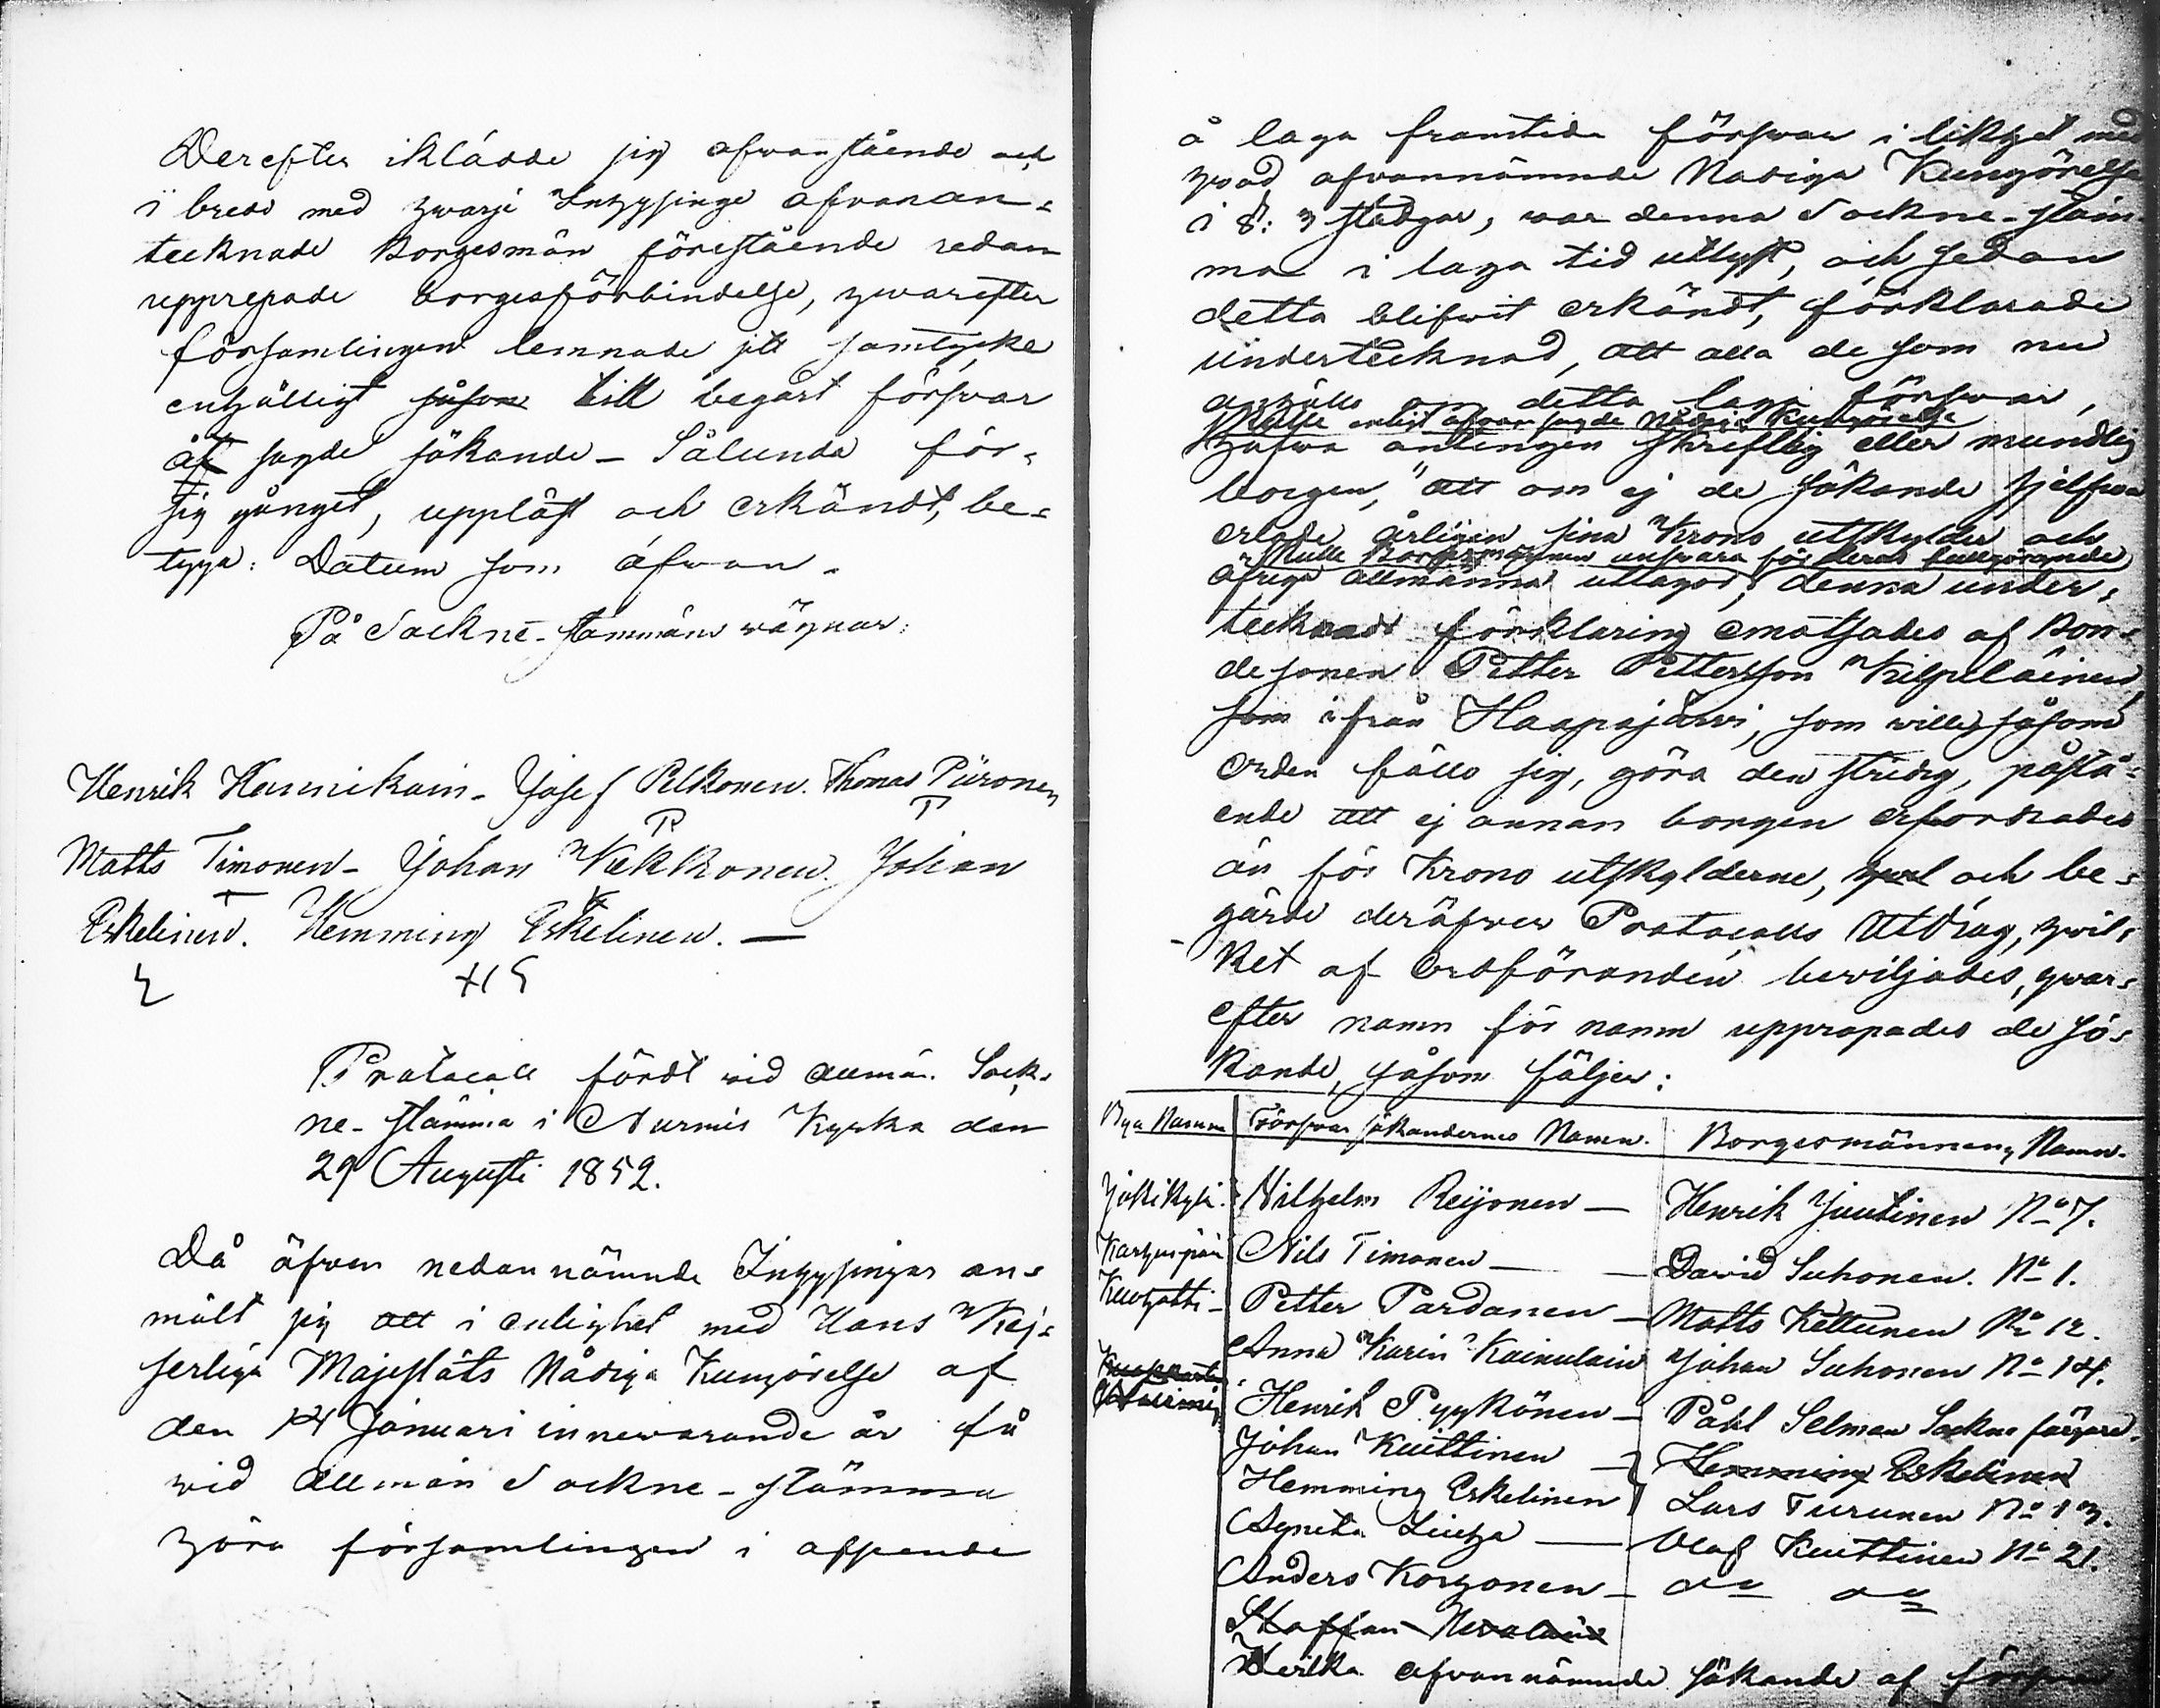 Derefter iklädde sig ofvanstående och
i bredd med hvarje Inhysinge ofvanan-
tecknade Borgesmän förestående redan
upprepade borgesförbindelse, hvarefter
församlingen lemnade sitt samtycke
enhälligt såsom till begärt försvar
åt sagde sökande – Sålunda för-
sig gånget, uppläst och erkändt, be-
tyga: Datum som ofvan.
På Sockne-stämmans wägnar:
Henrik Hannikain – Josef Pelkonen. Thomas Piironen
Matts Timonen – Johan Wäkkonen. Johan
Eskelinen. Hemming Eskelinen. —
Protocoll fördt wid allmän Sock-
ne-stämma i Nurmis Kyrka den
29 Augusti 1852.
Då äfven nedannämnde Inhysingar an-
mält sig att i enlighet med Hans Kej-
serliga Majestäts Nådiga Kungörelse af
den 14 Januari innewarande år få
wid allmän Sockne-stämma
höra församlingen i afseende
å laga framtida försvar i likhet med
hvad ofvannämnde Nådiga Kungörelse
i §: 3 stadgar, war denna Sockne-stäm-
ma i laga tid utlyst, och sedan
detta blifwit erkändt, förklarade
undertecknad, att alla de som nu
anhålla om detta laga försvar,
skulle enligt ofvansagde Nådiga Kungörelse
hafwa antingen skriftlig eller mundtlig
borgen, att om ej de sökande sjelfwa
erlade årligen sina Krono utskylder och
skulle Borgesmännen ansvara för deras fullgörande
öfriga allmänna utlagor; denna under-
tecknads förklaring emotsades af Bon-
desonen Petter Pettersson Kilpeläinen
från Haapajärvi, som wille såsom
orden fälls sig, göra den stridig, påstå-
ende att ej annan borgen erfordrades
än för Krono utskylderne, och be-
gärde deröfver Protocolls Utdrag, hwil-
ket af Ordföranden bewiljades, hwar-
efter namn för namn upproprades de sö-
kande, såsom följer:
Bya Namn Försvar sökandernes Namn. Borgesmännens Namn.
Jokikylä. Wilhelm Reijonen — Henrik Juutinen No 7.
Karhunpää Nils Timonen — David Suhonen. No 1.
Kuohatti – Petter Pardanen – Matts Kettunen No 12.
Anna Karin Kainulain Johan Suhonen No 14.
Nurmis Henrik Pyykönen – Påhl Selman Sockne färgare.
Johan Kuittinen – Hemming Eskelinen
Hemming Eskelinen Lars Turunen No 13.
Agneta — Olof Kuittinen No 21.
Anders Korhonen – do do
Staffan Nevalain
Hvilka ofvannämnde sökande af försvar